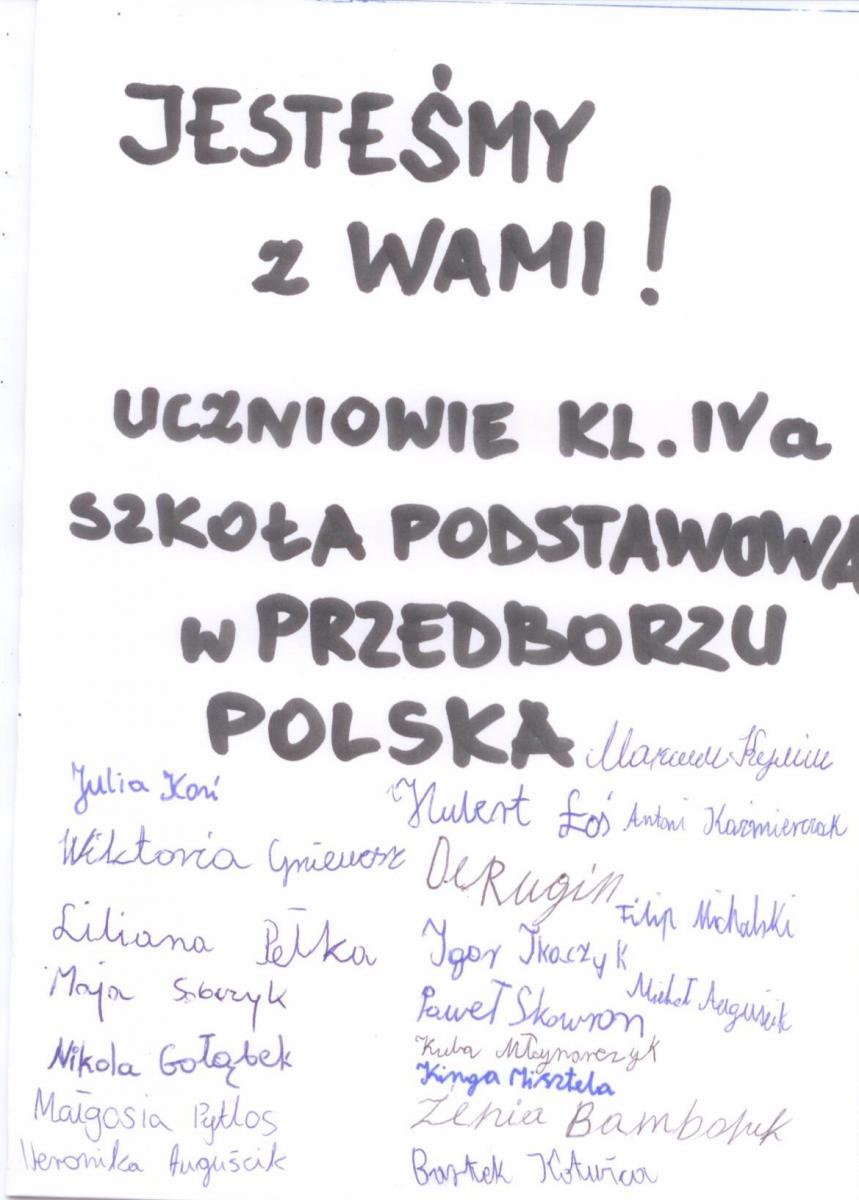 JESTEŚMY
z WAMI!
UCZNIOWIE KL. IVa
SZKOŁA PODSTAWOWA
w PRZEDBORZU
POLSKA
Julia Koń
Hubert Łoś Antoni Kaźmierczak
Wiktoria Gniewosz
Filip Michalski
Liliana Pełka Igor Tkaczyk
Maja Michał Auguścik
Paweł Skowron
Nikola Gołąbek Kuba Młynarczyk
Kinga Misztela
Małgosia Pytlos
Weronika Auguścik Bartek Kotwica